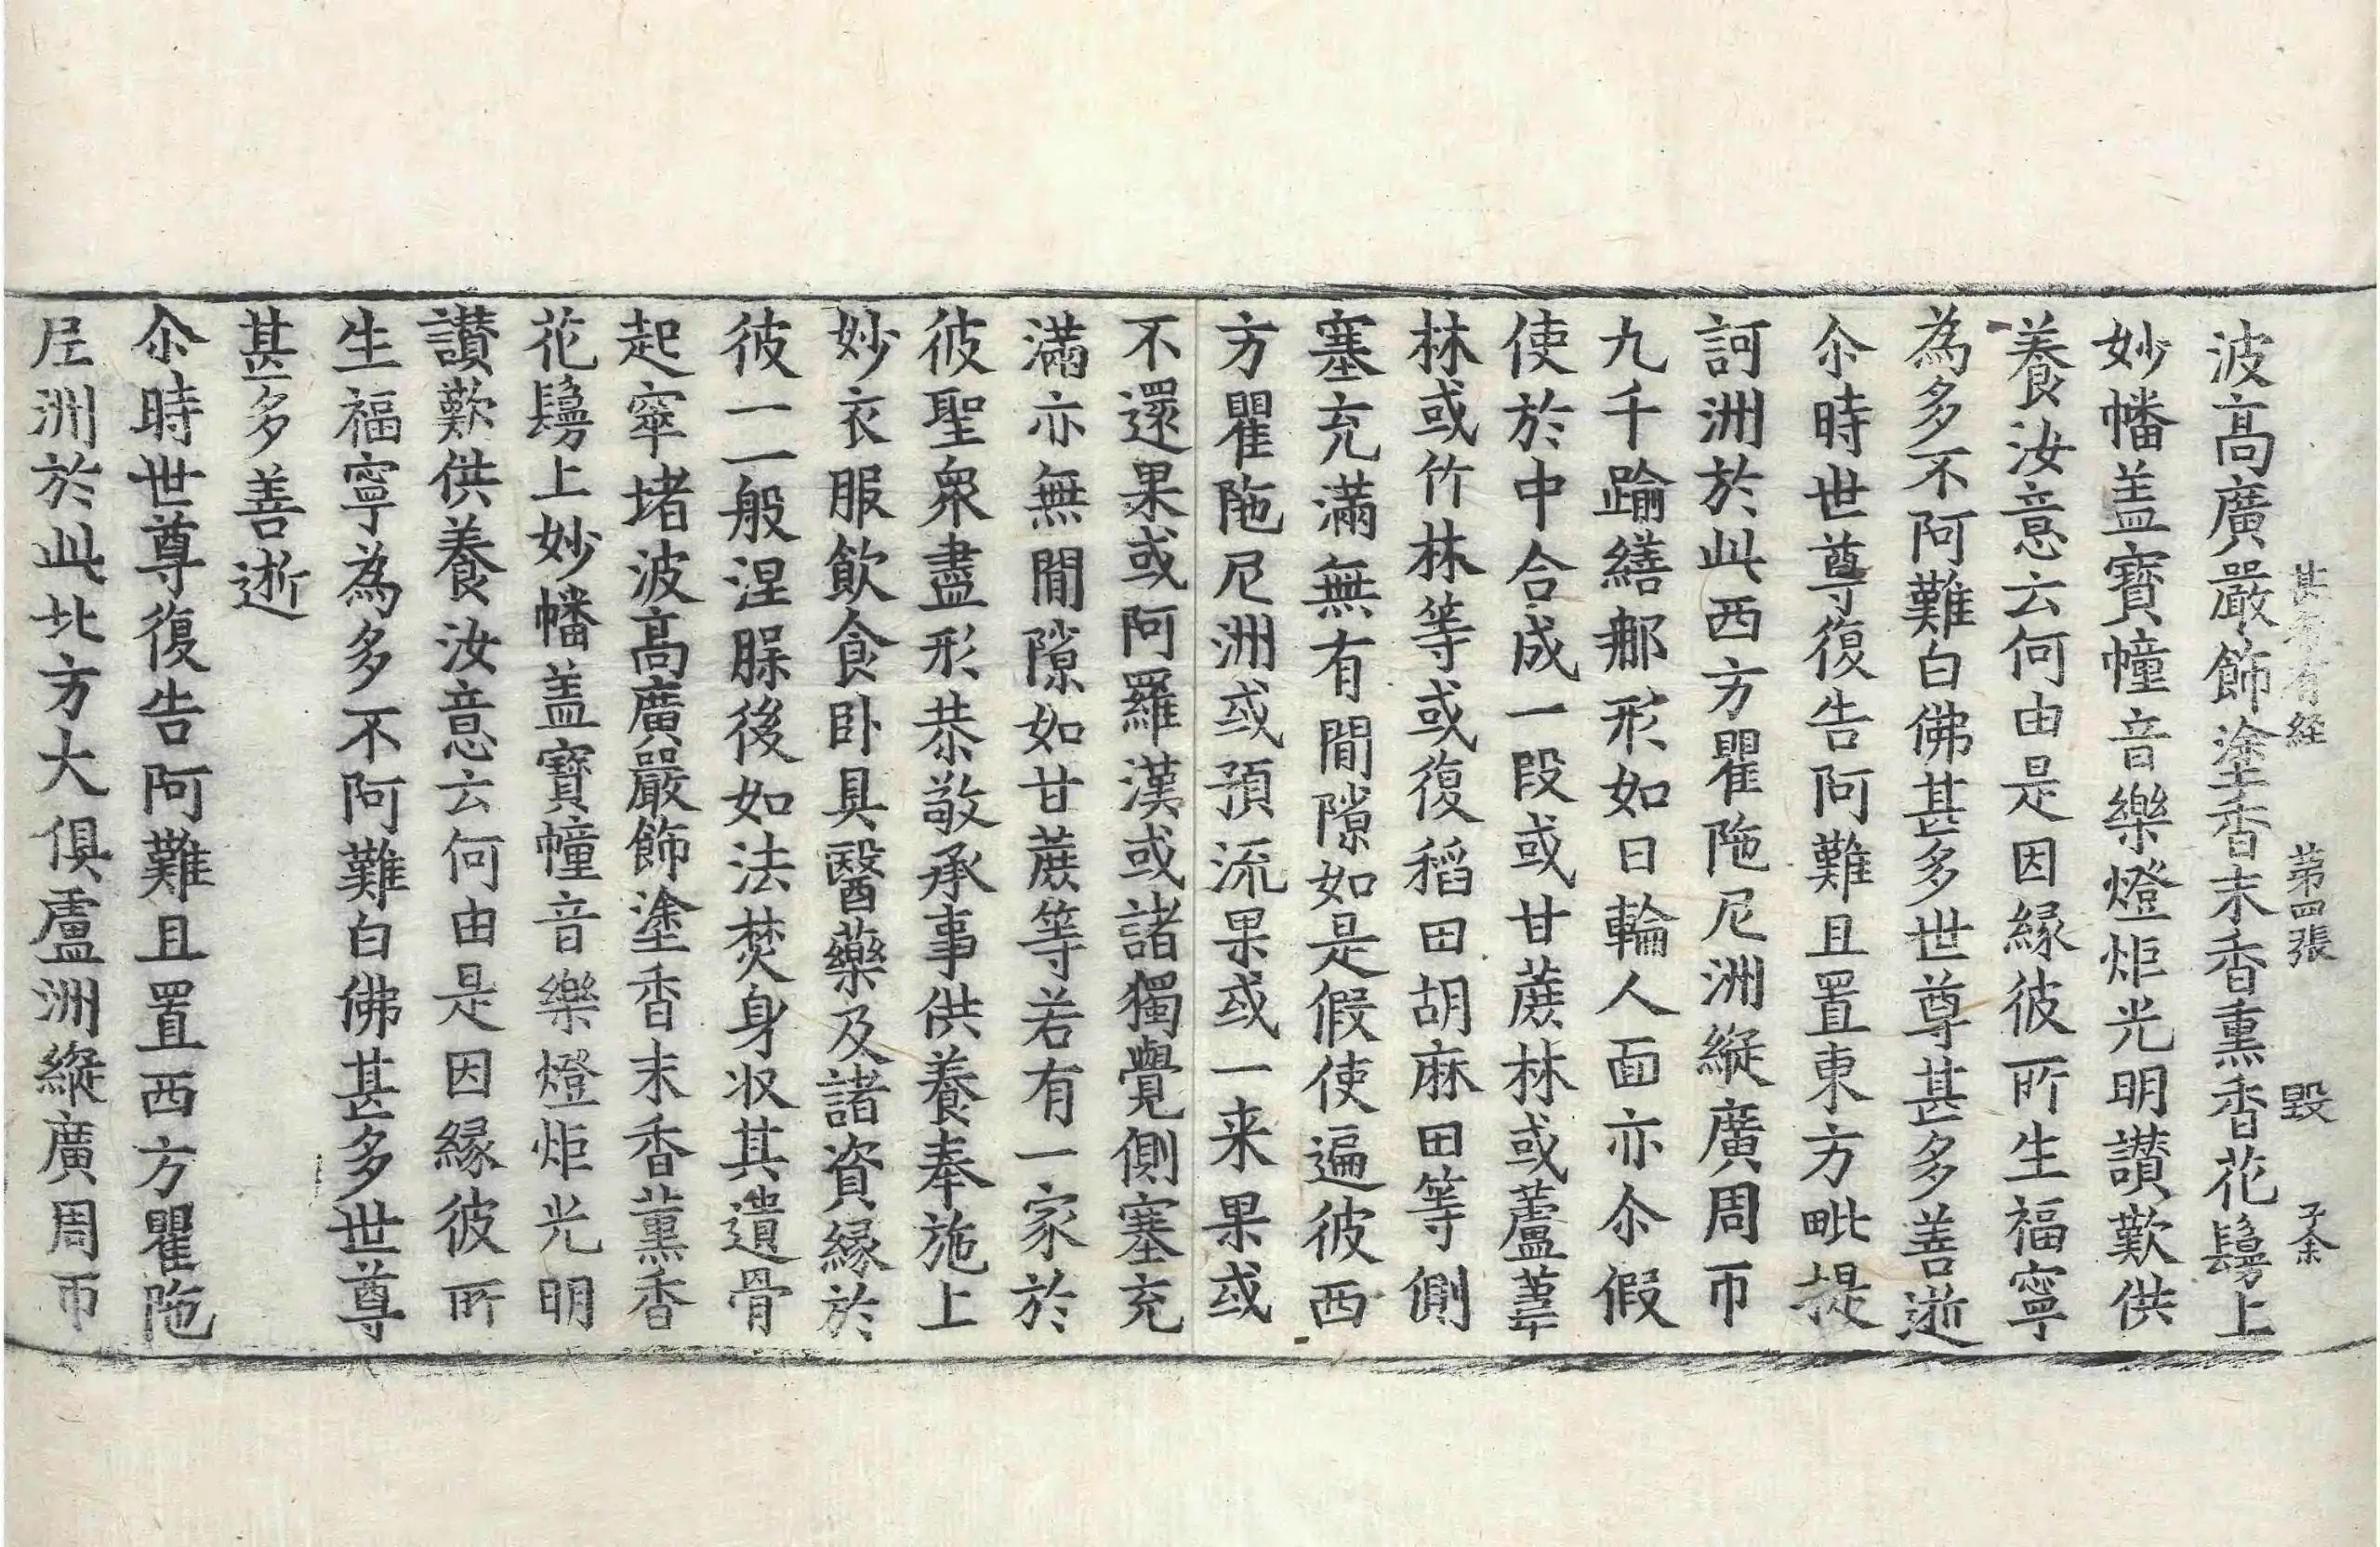 甚希有経 第四張 毀 子余
波高廣嚴飾塗香末香熏香花鬘上
妙幡盖寶幢音樂燈炬光明讃歎供
養汝意云何由是因緣彼所生福寧
為多不阿難白佛甚多世尊甚多善逝
尒時世尊復告阿難且置東方毗提
訶洲於此西方瞿陁尼洲縱廣周帀
九千踰繕那形如日輪人面亦尒假
使於中合成一段或甘蔗林或蘆葦
林或竹林林等或復稻田胡麻田等側
塞充滿無有間隙如是假使遍彼西
方瞿陁尼洲或預流果或一来果或
不還果或阿羅漢或諸獨覺側塞充
滿亦無間隙如甘蔗等若有一家於
彼聖衆盡形恭敬承事供養奉施上
妙衣服飲食卧具醫藥及諸資緣於
彼一一般涅躶後如法焚身収其遺骨
起窣堵波高廣嚴飾塗香末香薰香
花鬘上妙幡盖寶幢音樂燈炬光明
讃歎供養汝意云何由是因緣彼所
生福寧為多不阿難白佛甚多世尊
甚多善逝
尒時世尊復告阿難且置西方瞿陁
尼洲於此北方大俱盧洲縱廣周帀